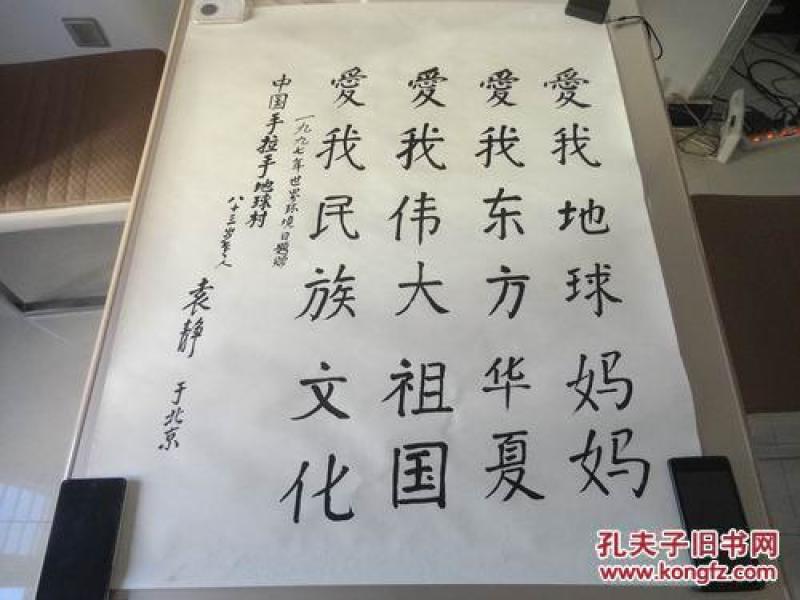 愛我地球妈妈
愛我东方华夏
愛我伟大祖国
愛我民族文化
一九九七年世界环境日题赠
中国手拉手地球村
八十三岁老人
袁静 于北京
孔夫子旧书网
www.kongfz.com